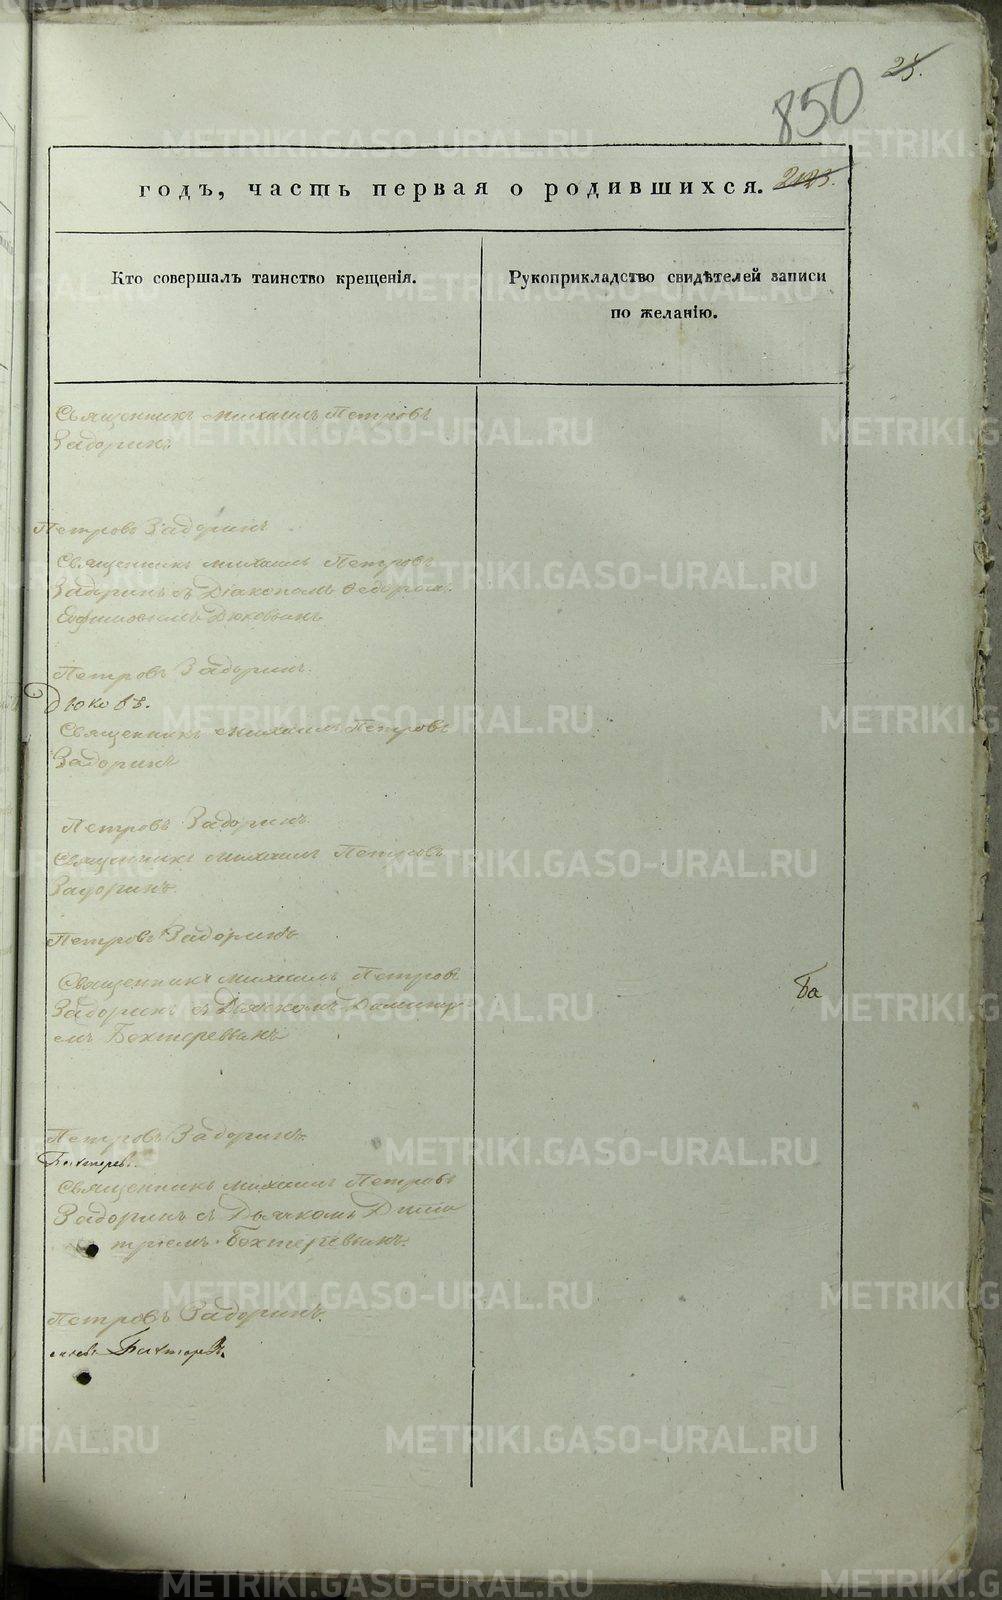 25.
850
годъ, часть первая о родившихся.
Кто совершалъ таинство крещенія.
Рукоприкладство свидѣтелей записи
по желанію.
Священникъ Михаилъ Петровъ
Задоринъ
Петровъ Задоринъ
Священникъ Михаилъ Петровъ
Задоринъ съ Діакономъ Ѳедоромъ
Евфимовымъ Дюковымъ
Петровъ Задоринъ.
Дюковъ.
Священникъ Михаилъ Петровъ
Задоринъ
Петровъ Задоринъ
Священникъ Михаилъ Петровъ
Задоринъ.
Петровъ Задоринъ
Священникъ Михаилъ Петровъ
Задоринъ съ Дьячкомъ
емъ Бехтеревымъ
Ба
Петровъ Задоринъ.
Бехтерев.
Священникъ Михаилъ Петровъ
Задоринъ съ Дьячкомъ Дими
тріемъ Бехтеревымъ.
Петровъ Задоринъ.
METRIKI.GASO-URAL.RU